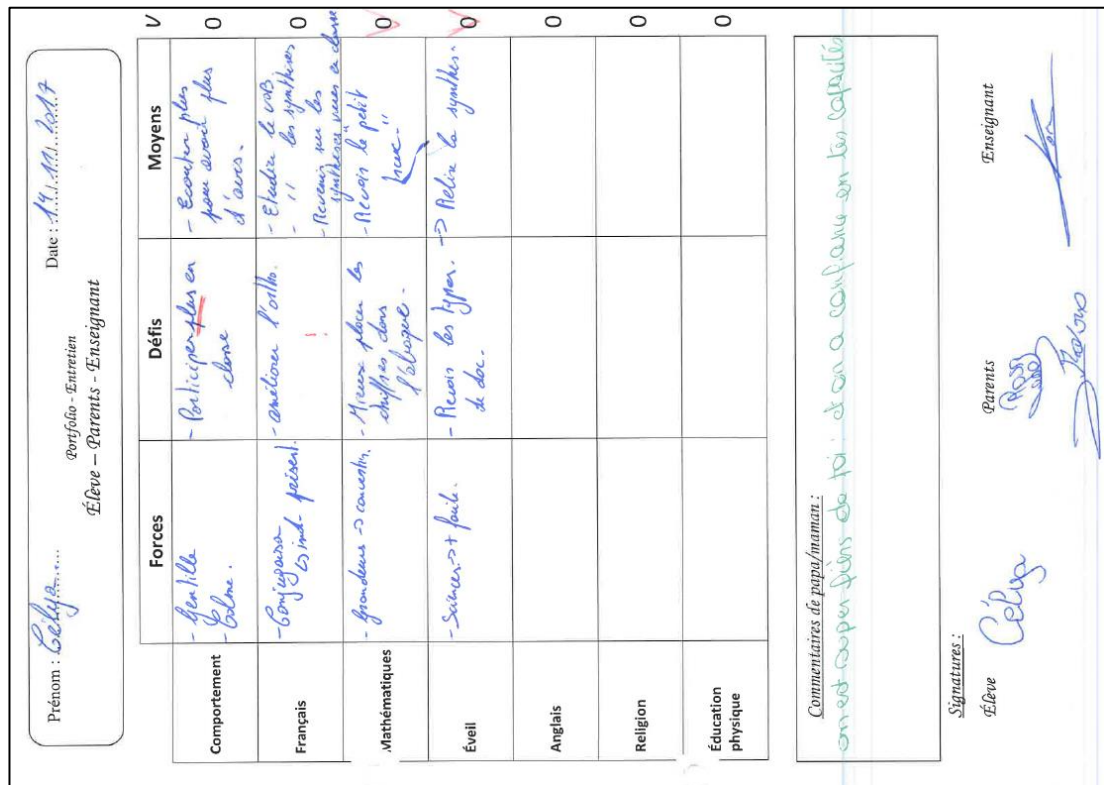 Prénom : Célya
Date : 14/11/2017
Portfolio - Entretien
Élève – Parents - Enseignant
Forces
Défis
Moyens
V
Comportement
- Gentille
- Calme.
- Participer plus en
classe
- Ecouter plus
pour avoir plus
d'avis.
O
Français
- Conjugaison
↳ ind. présent.
- améliorer l'ortho.
!
- Etudier le voc
- " les synthèses
- Revenir sur les
synthèses vues en classe
O
Mathématiques
- Grandeurs →
- Mieux placer les
chiffres dans
l'abaque.
- Revoir le "petit
truc."
O
Éveil
- Sciences → + facile.
- Revoir les types
de doc.
→ Relire la synthèse.
O
Anglais
O
Religion
O
Éducation
physique
O
Commentaires de papa/maman :
on est super fiers de toi: et on a confiance en tes capacités
Signatures :
Élève
Parents
Enseignant
Célya